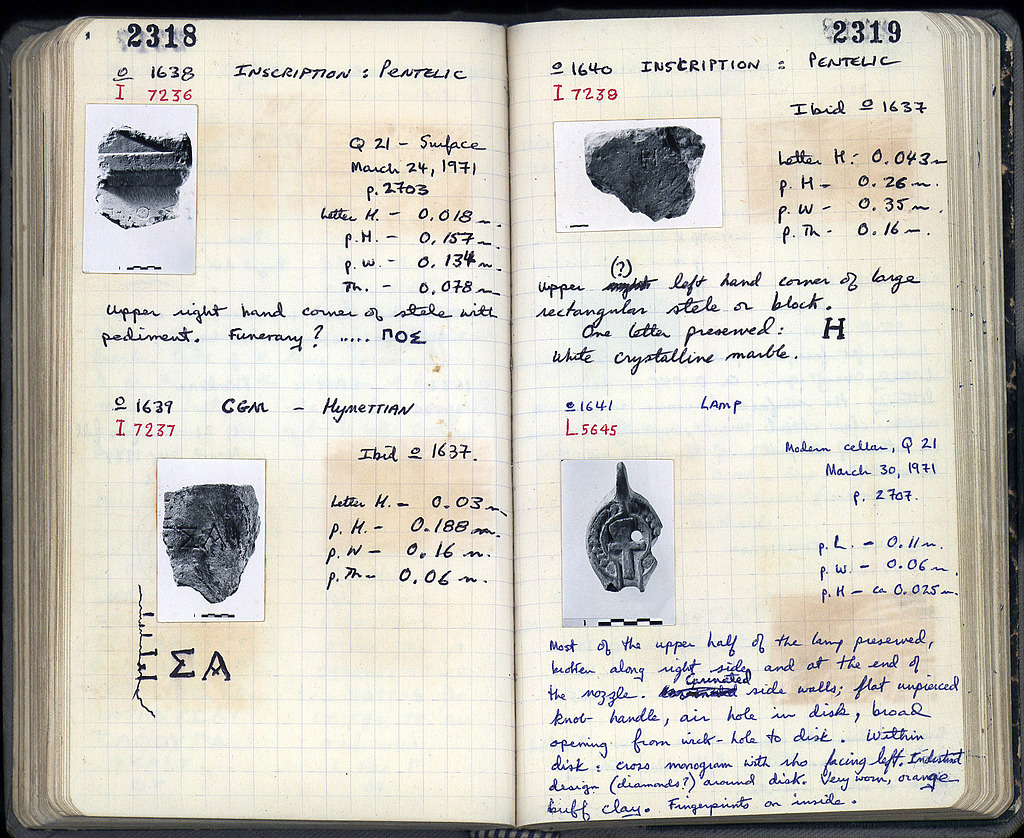 2318
o 1638 INSCRIPTION : PENTELIC
I 7236
Q 21 - Surface
March 24, 1971
p. 2703
Letter H. - 0.018 m.
p. H. - 0.157 m.
p. W. - 0.134 m.
Th. - 0.078 m
Upper right hand corner of stele with
pediment. Funerary? ..... ΠΟΣ
o 1639 CGM - HYMETTIAN
I 7237
Ibid o 1637.
Letter H. - 0.03 m
p. H. - 0.188 m.
p. W - 0.16 m.
p. Th - 0.06 m.
ΣΑ
2319
o 1640 INSCRIPTION : PENTELIC
I 7238
Ibid o 1637
Letter H. 0.043 m
p. H - 0.26 m.
p. W - 0.35 m.
p. Th - 0.16 m.
(?)
Upper left hand corner of large
rectangular stele or block.
One letter preserved: H
White crystalline marble.
o 1641 LAMP
L 5645
Modern cellar, Q 21
March 30, 1971
p. 2707.
p. L. - 0.11 m.
p. W. - 0.06 m.
p. H - ca 0.025 m.
Most of the upper half of the lamp preserved,
broken along right side, and at the end of
the nozzle. Carinated side walls; flat unpierced
knob handle, air hole in disk, broad
opening from wick-hole to disk. Within
disk: cross monogram with rho facing left. Indistinct
design (diamonds?) around disk. Very worn, orange
buff clay. Fingerprints on inside.